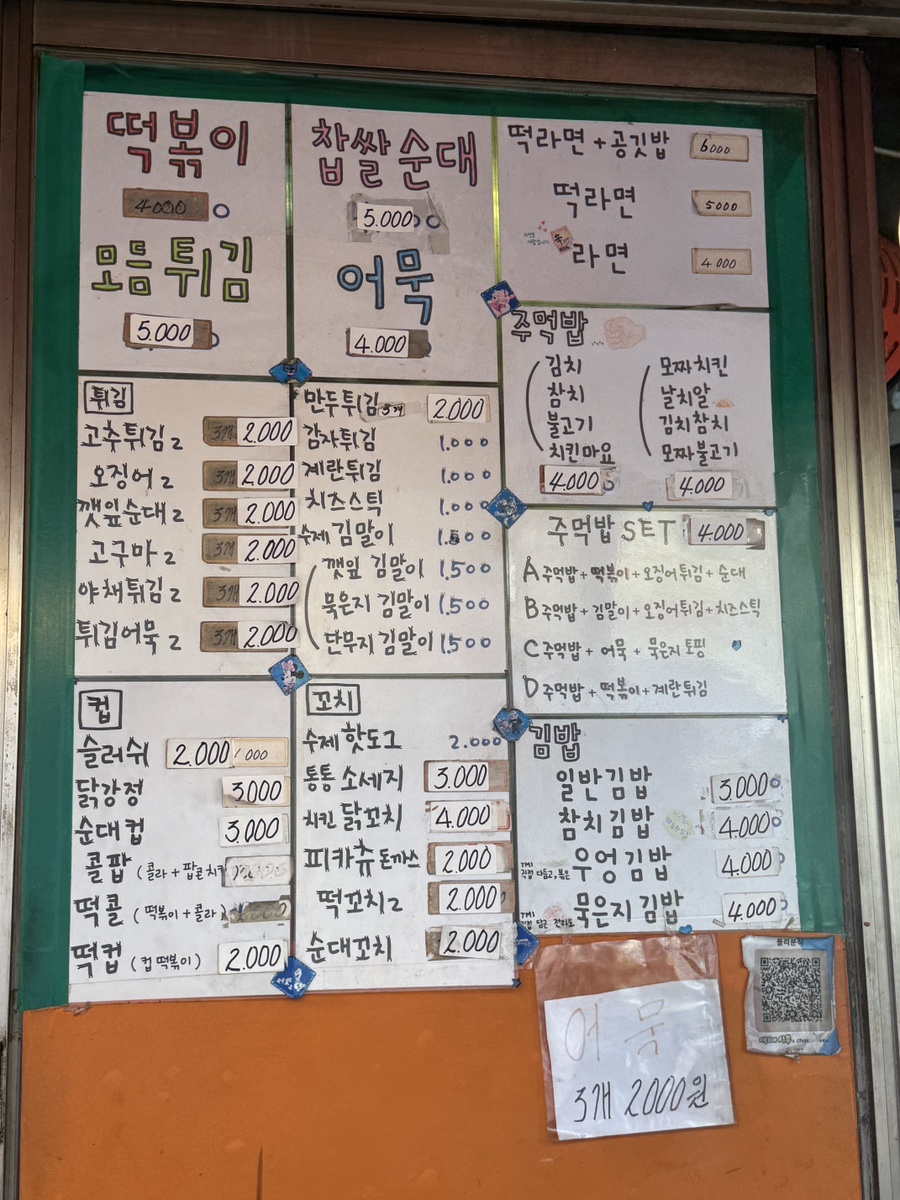 떡볶이
4000
모듬튀김
5.000
찹쌀순대
5.000
어묵
4.000
떡라면+공깃밥 6000
떡라면 5000
라면 4000
튀김
고추튀김2 3개 2.000
오징어2 3개 2.000
깻잎순대2 3개 2.000
고구마2 3개 2.000
야채튀김2 3개 2.000
튀김어묵2 3개 2.000
만두튀김 3개 2.000
감자튀김 1.000
계란튀김 1.000
치즈스틱 1.000
수제 김말이 1.500
깻잎 김말이 1,500
묵은지 김말이 1,500
단무지 김말이 1,500
주먹밥
김치
참치
불고기
치킨마요
4.000
모짜치킨
날치알
김치참치
모짜불고기
4.000
주먹밥 SET 4.000
A 주먹밥+떡볶이+오징어튀김+순대
B 주먹밥+김말이+오징어튀김+치즈스틱
C 주먹밥+어묵+묵은지토핑
D 주먹밥+떡볶이+계란튀김
컵
슬러쉬 2.000
닭강정 3.000
순대컵 3.000
콜팝 (콜라+팝콘치킨)
떡콜 (떡볶이+콜라)
떡컵 (컵떡볶이) 2.000
꼬치
수제핫도그 2.000
통통소세지 3.000
치킨 닭꼬치 4.000
피카츄돈까스 2.000
떡꼬치2 2.000
순대꼬치 2.000
김밥
일반김밥 3.000
참치김밥 4.000
TMI 직접 다듬고, 볶은 우엉김밥 4.000
TMI 묵은지김밥 4.000
어묵
3개 2000원